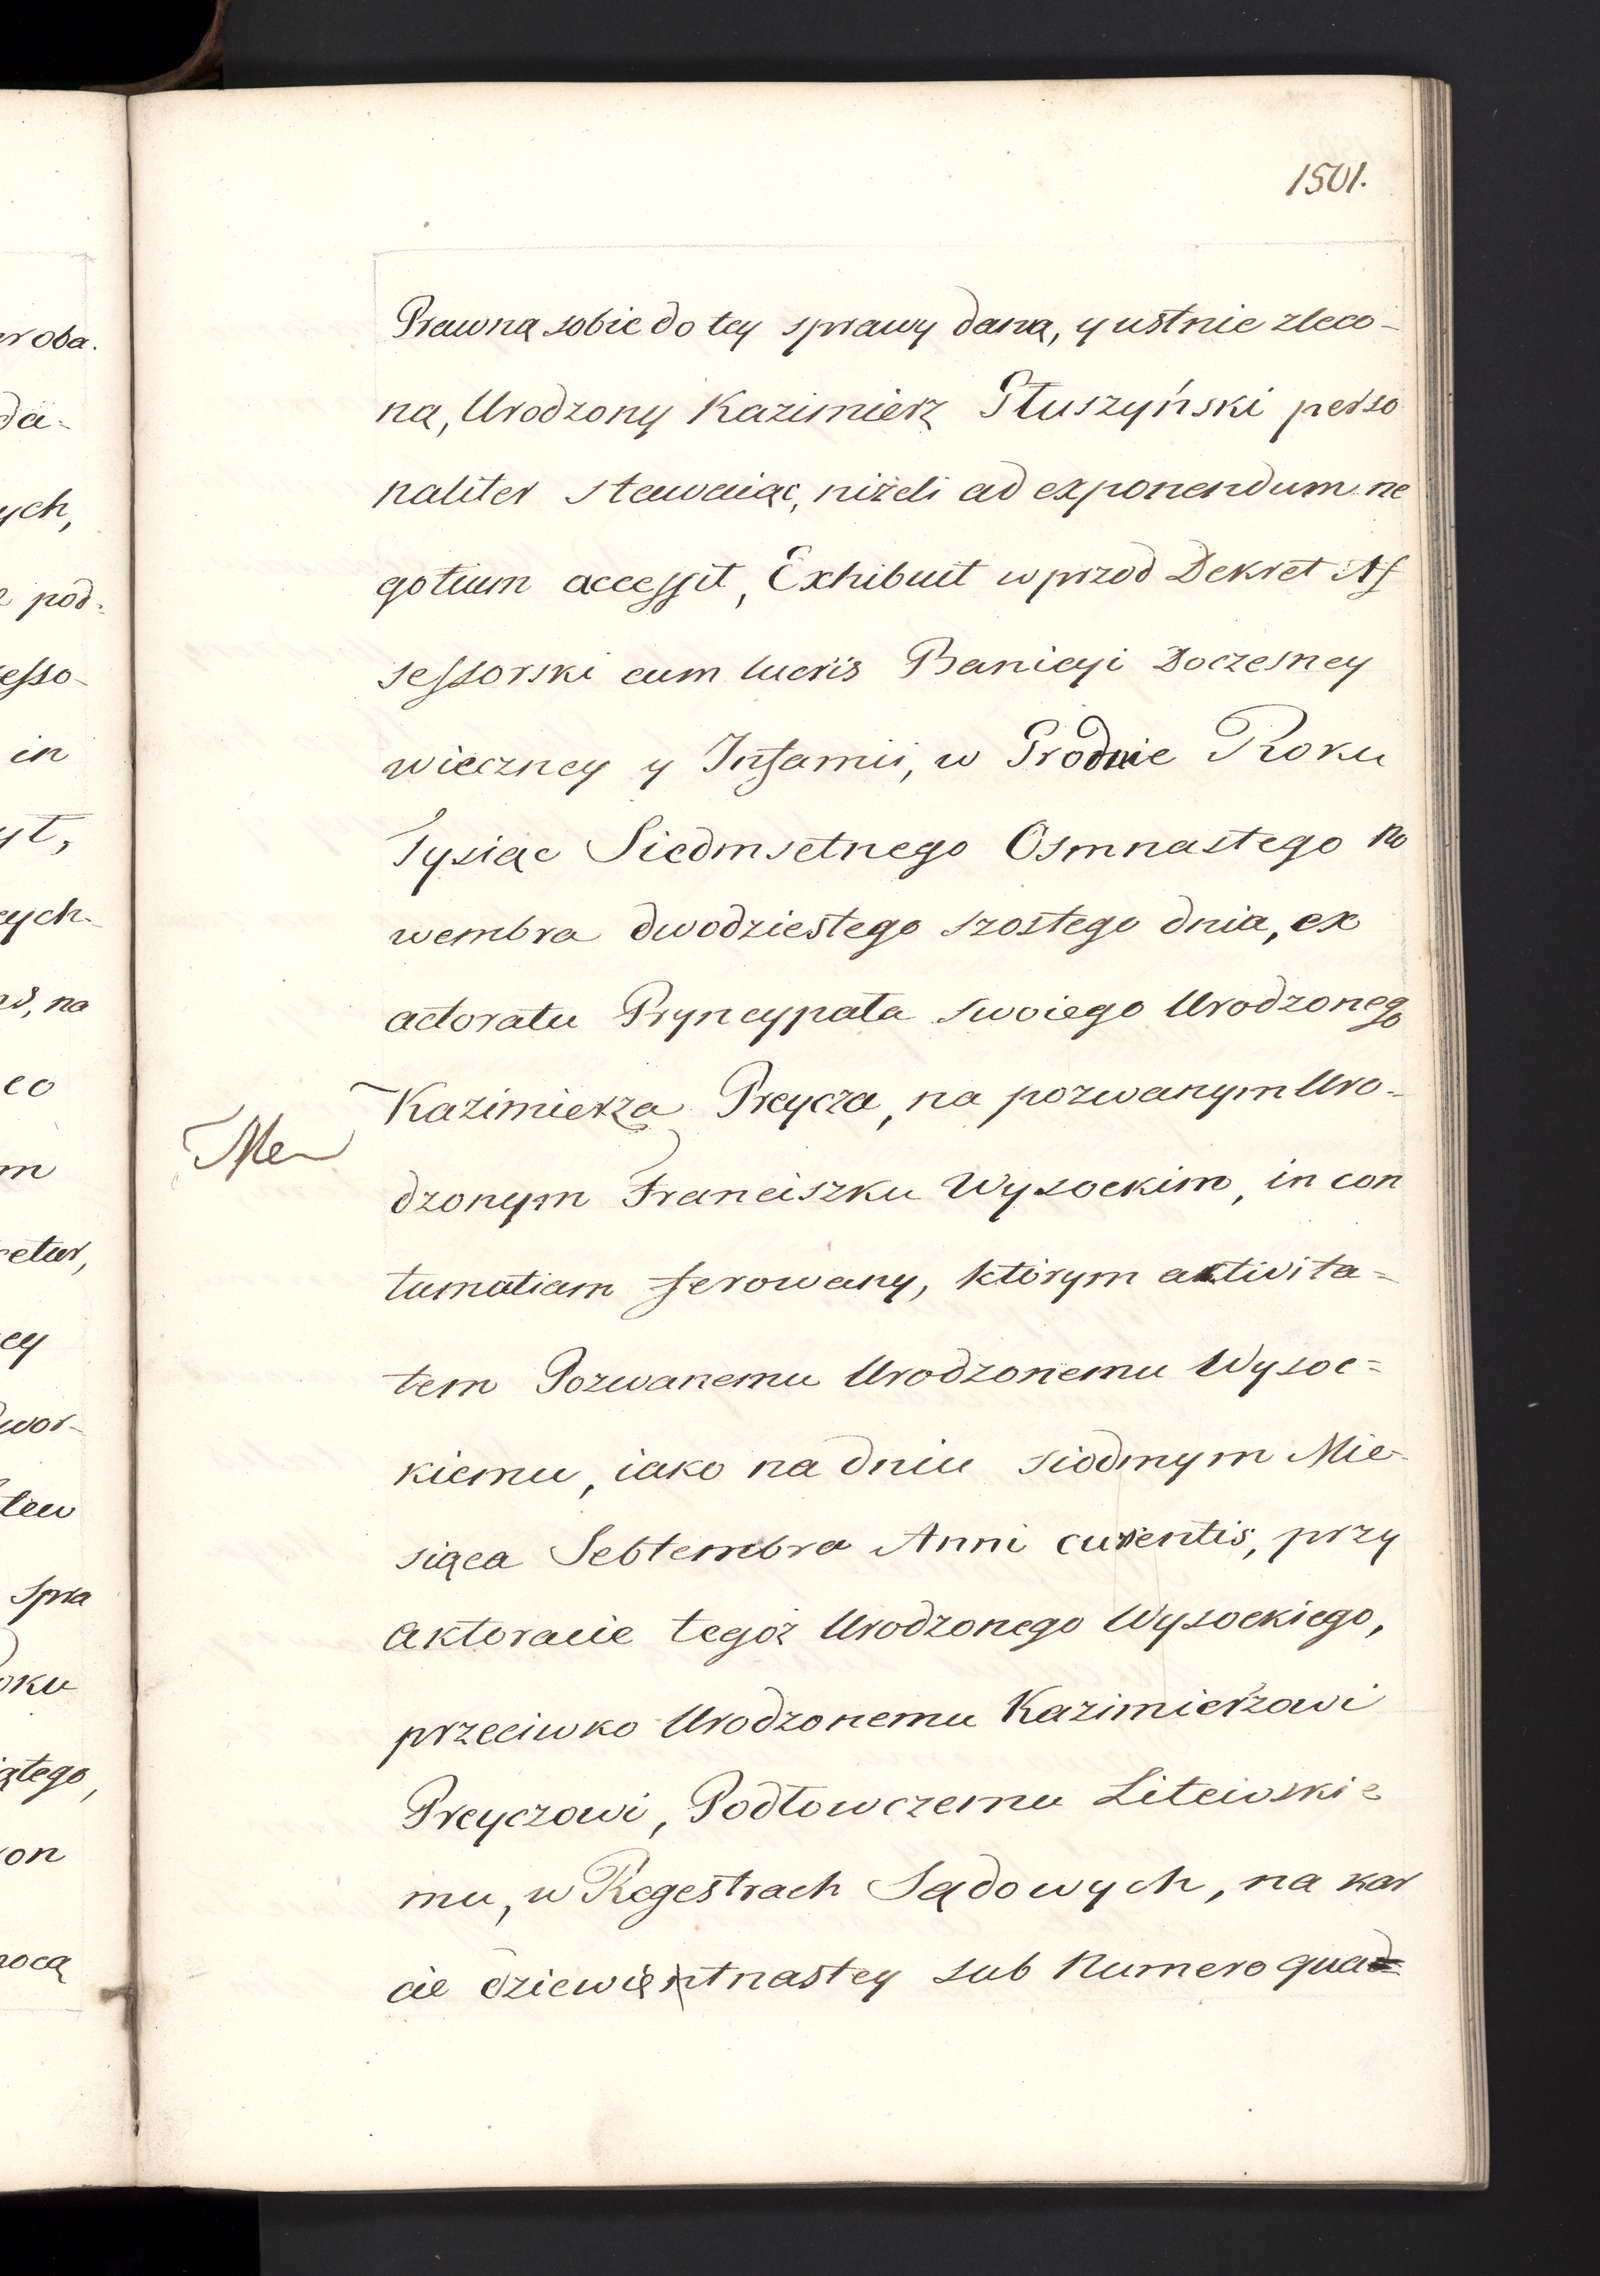 1501.
Prawną sobie do tey sprawy daną, y ustnie zleco-
ną, Urodzony Kazimierz Płuszyński perso
naliter stawaiąc, niżeli ad exponendum ne
gotium accessit, Exhibuit wprzod Dekret As
sessorski cum lucris Banicyi Doczesney
wieczney y Infamii, w Grodnie Roku
Tysiąc Siedmsetnego Osmnastego No
wembra dwodziestego szostego dnia, ex
actoratu Pryncypała swoiego Urodzonego
Kazimierza Preycza, na pozwanym Uro-
dzonym Franciszku Wysockim, in con
tumatiam ferowany, którym activita=
tem Pozwanemu Urodzonemu Wysoc=
kiemu, iako na dniu siodmym Mie-
siąca Sebtembra Anni curentis, przy
Aktoracie tegoż Urodzonego Wysockiego,
przeciwko Urodzonemu Kazimierzowi
Preyczowi, Podłowczemu Litewskie
mu, w Regestrach Sądowych, na kar
cie dziewiętnastey sub Numero quad=